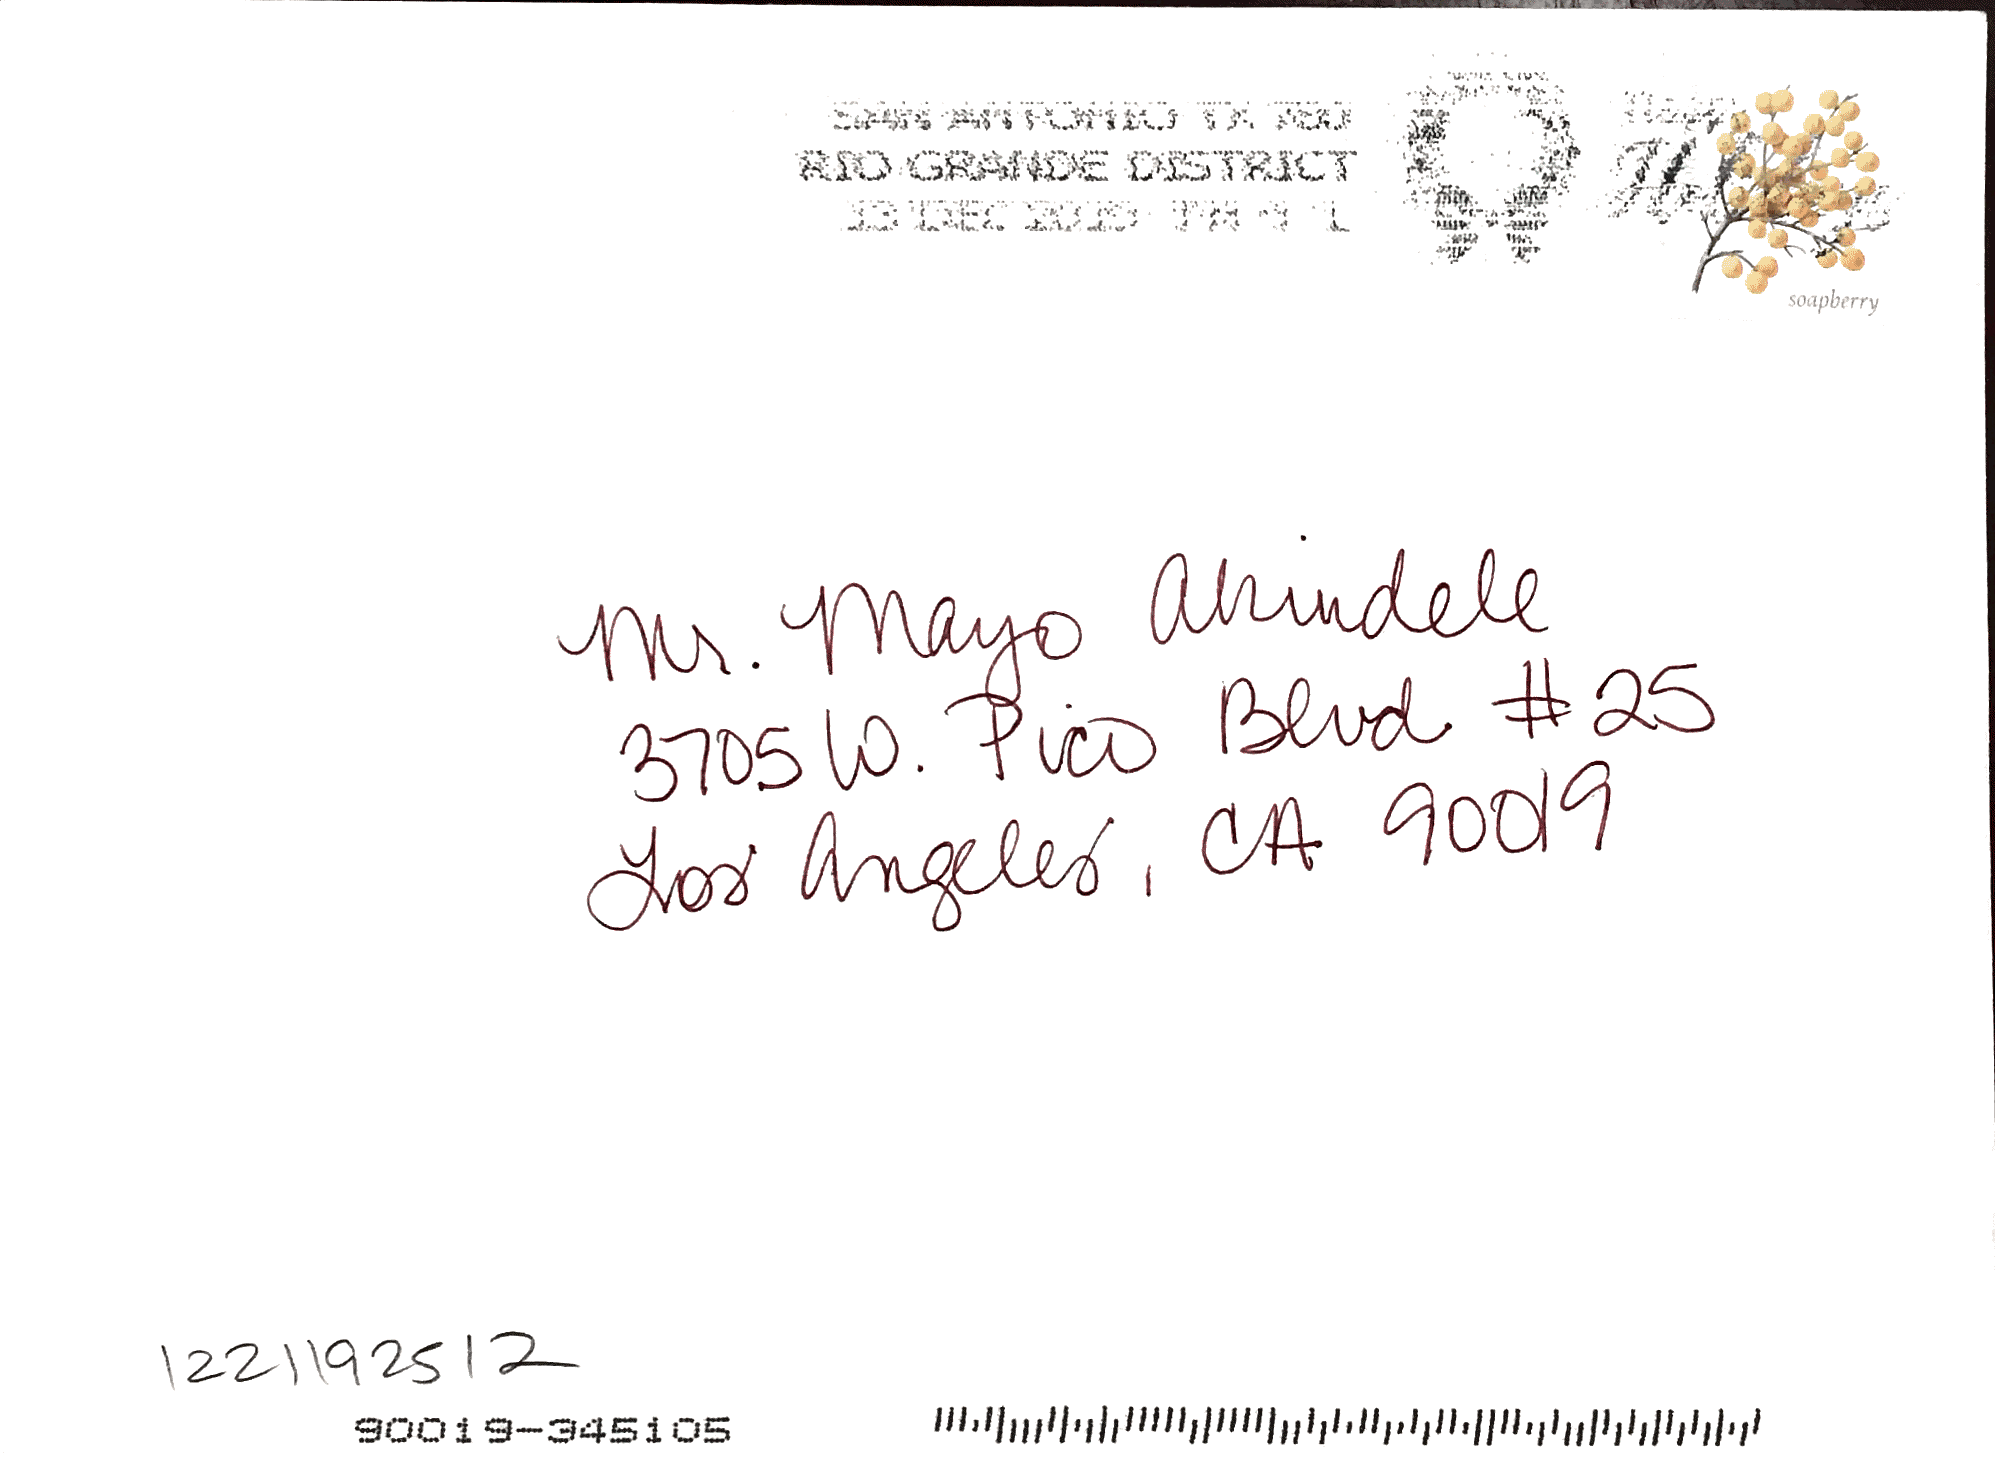 SAN ANTONIO TX 780
RIO GRANDE DISTRICT
13 DEC 2019 PM 4 L
soapberry
Mr. Mayo Akindele
3705 W. Pico Blvd. #25
Los Angeles, CA 90019
1221192512
90019-345105